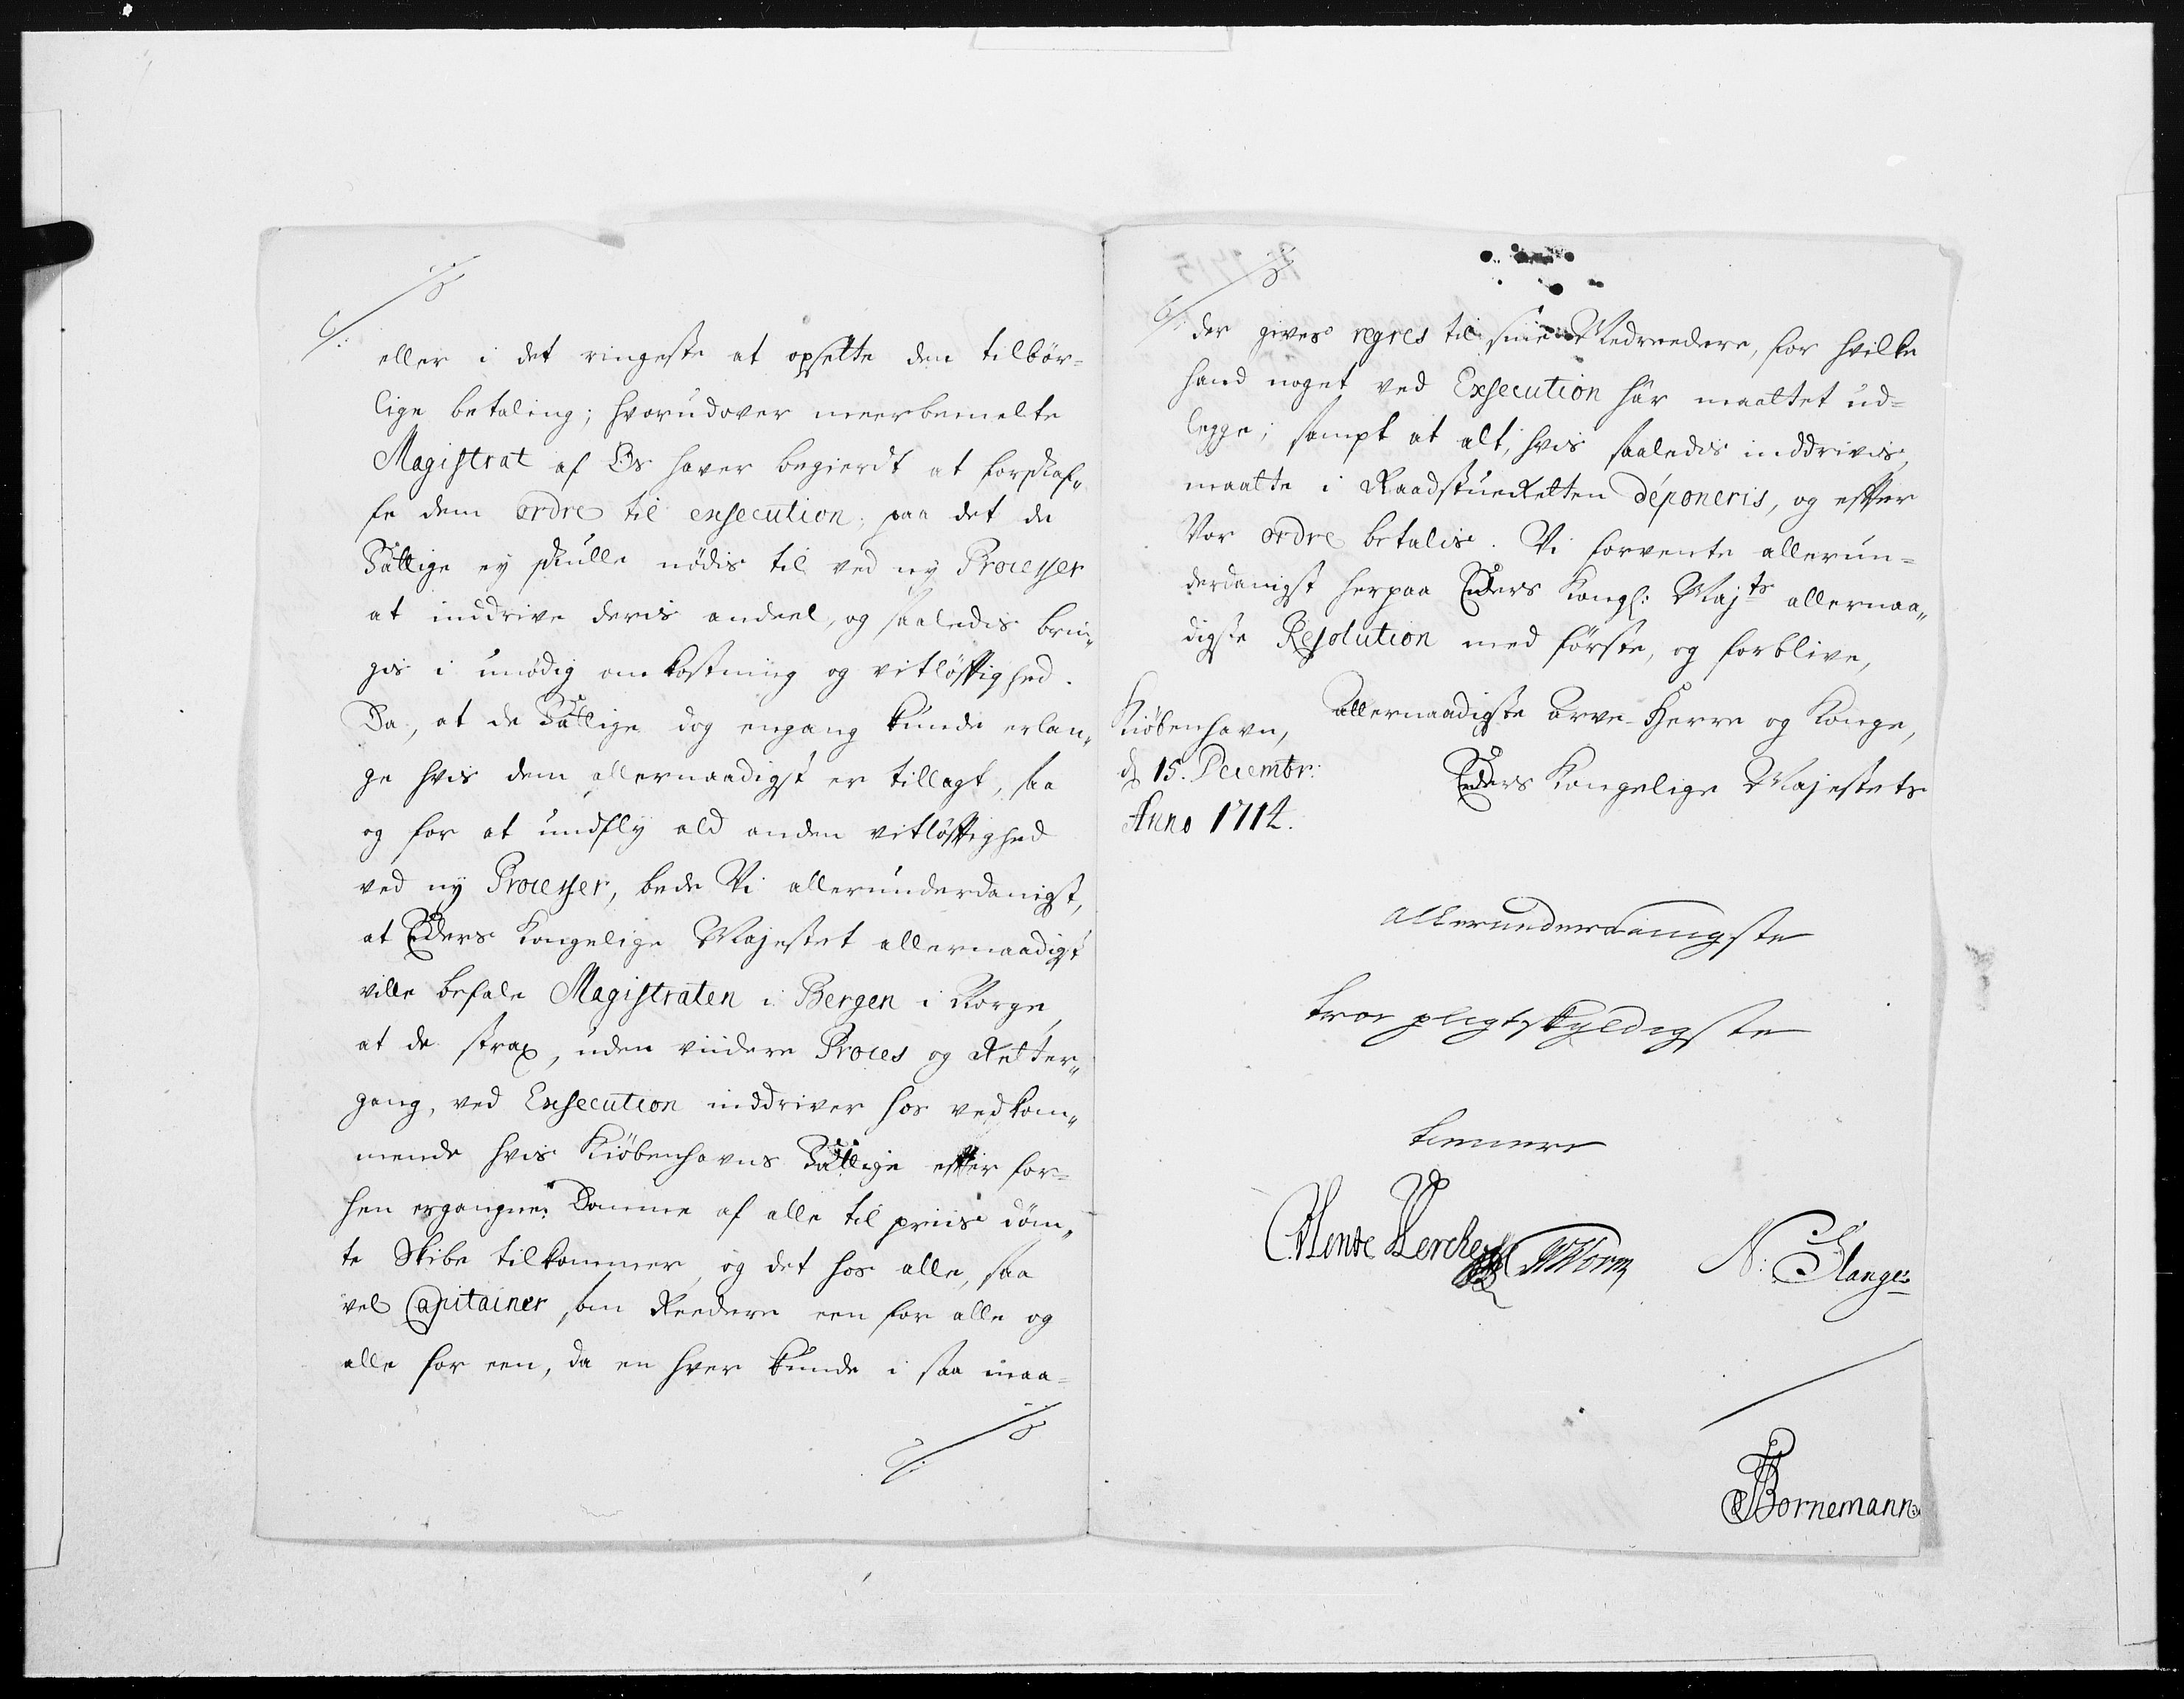 eller i det ringeste at opsette den tilbør-
lige betaling; hvorudover meerbemelte
Magistrat af Os haver begierdt at forskaf„
fe dem ordre til exsecution, paa det de
Fattige ey skulle nødis til ved ny Processer
at inddrive deris andeel, og saaledis brin„
gis i unødig omkostning og vitløfftighed.
Da, at de Fattige dog engang kunde erlan„
ge hvis dem allernaadigst er tillagt, saa
og for at undfly ald anden vitløfftighed
ved ny Processer, bede Vi allerunderdanigst,
at Eders Kongelige Majestet allernaadigst
ville befale Magistraten i Bergen i Norge,
at de strax, uden viidere Proces og Retter„
gang, ved Exsecution inddriver hos vedkom„
mende hvis Kiøbenhavns Fattige effter for-
hen ergangne Domme af alle til priis døm„
te Skibe tilkommer, og det hos alle, saa
vel Capitainer som Reedere een for alle og
alle for een, da en hver kunde i saa maa-
der gives regres til siine Medreedere, for hvilke
hand noget ved Exsecution har maattet ud-
legge; sampt at alt, hvis saaledis inddrivis,
maatte i Raadstueretten déponeris, og effter
Vor ordre betalis. Vi forvente allerun-
derdanigst herpaa Eders Kongl: Majts allernaa„
digste Resolution med første, og forblive,
Allernaadigste Arve-Herre og Konge,
Kiøbenhavn,
d 15. Decembr:
Anno 1714.
Eders Kongelige Majestets
allerunderdanigste
troe pligtskyldigste
tienere
Worm
N: Slange
Bornemann